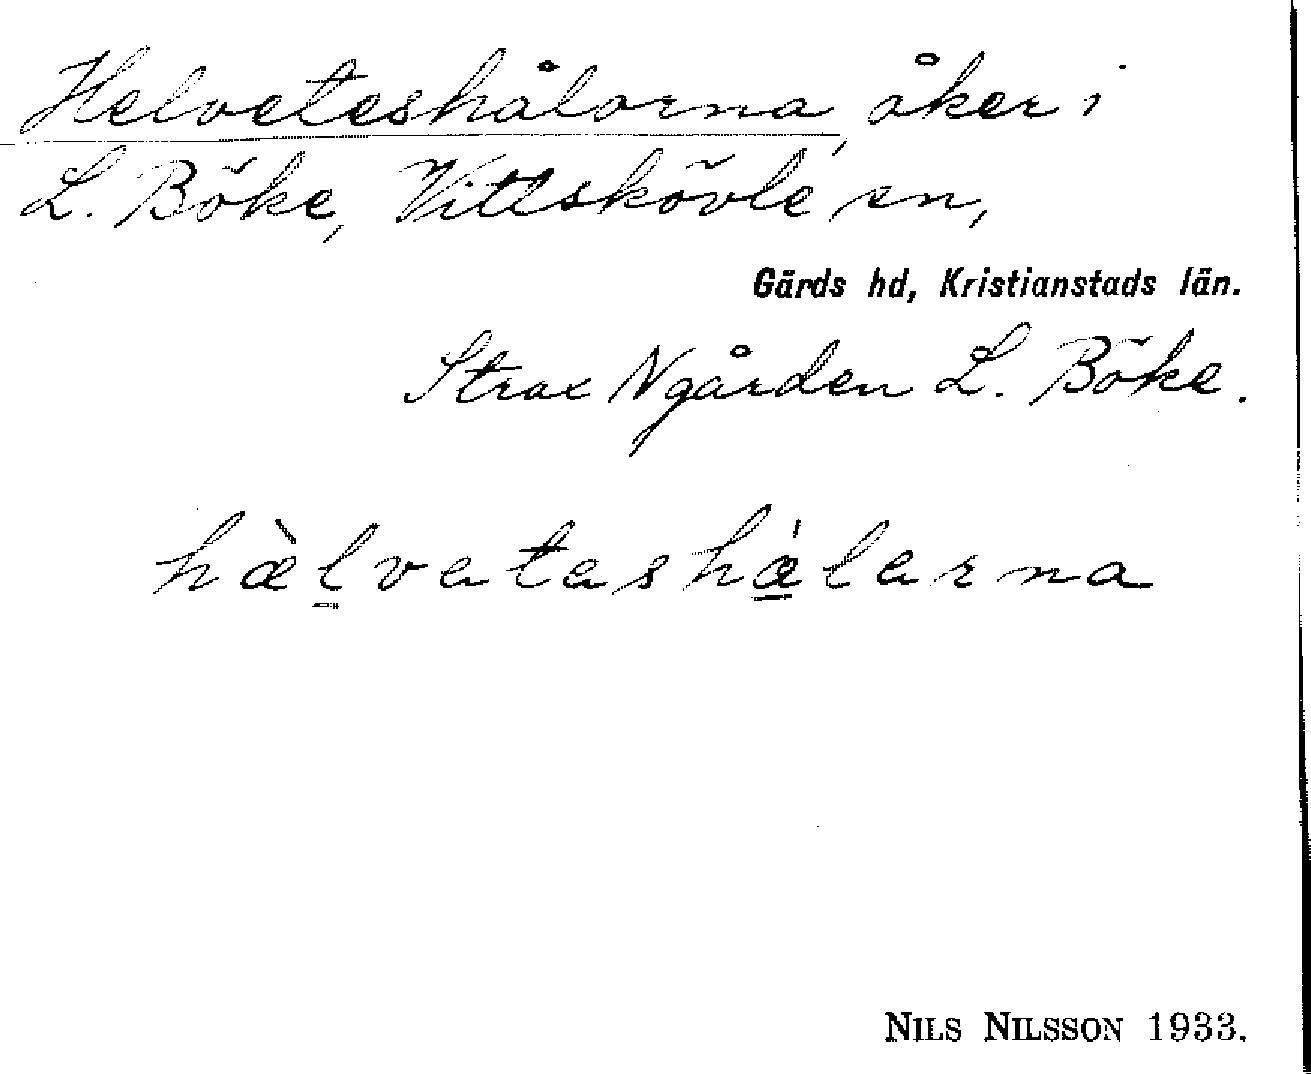 Helveteshålorna, åker i
L. Böke, Vittskövle sn,
Gärds hd, Kristianstads län.
Strax N gården L. Böke.
hæ̀l̲vatashá̲larna
NILS NILSSON 1933.